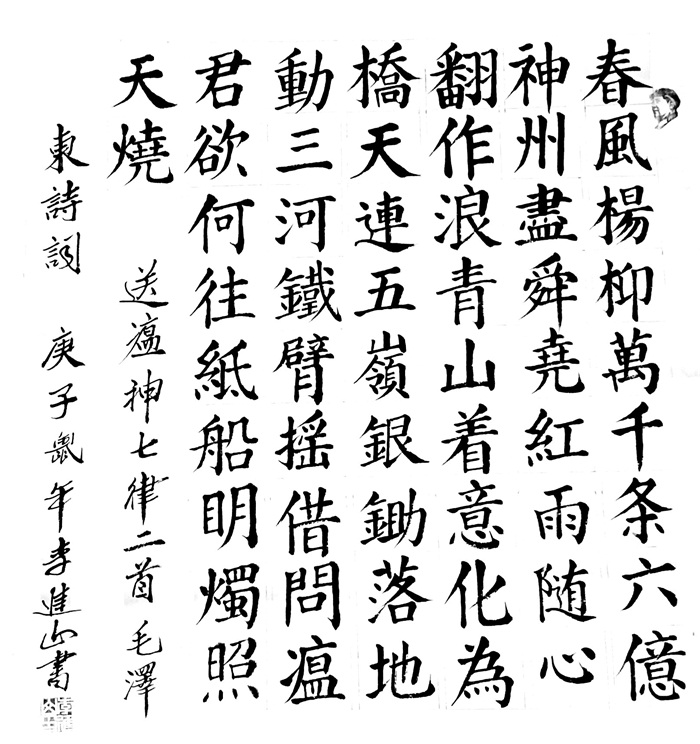 春風楊柳萬千条六億
神州盡舜堯紅雨随心
翻作浪青山着意化為
橋天連五嶺銀鋤落地
動三河鐵臂摇借問瘟
君欲何往紙船明燭照
天燒 送瘟神七律二首毛澤
東詩詞 庚子鼠年李進山書